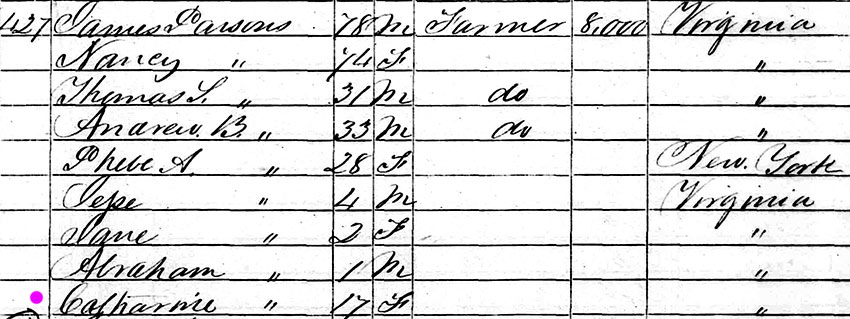 427 James Parsons 78 M Farmer 8,000 Virginia
Nancy " 74 F "
Thomas S. " 31 M do "
Andrew. B. " 33 M do "
Phebe A. " 28 F New. York
Jesse " 4 M Virginia
Jane " 2 F "
Abraham " 1 M "
Catharine " 17 F "